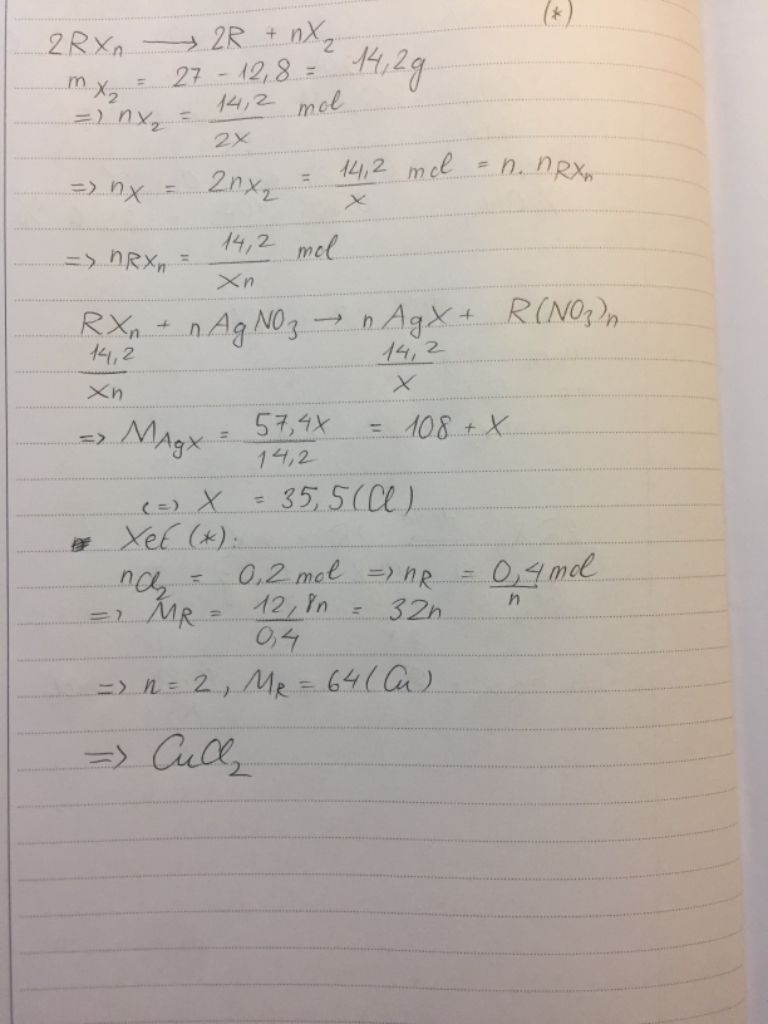 (*)
2RXₙ ⟶ 2R + nX₂
m X₂ = 27 - 12,8 = 14,2g
=> nX₂ = 14,2/2X mol
=> nX = 2nX₂ = 14,2/X mol = n. nRXₙ
=> nRXₙ = 14,2/Xn mol
RXₙ + nAgNO₃ → nAgX + R(NO₃)ₙ
14,2/Xn 14,2/X
=> MAgX = 57,4X/14,2 = 108 + X
<=> X = 35,5(Cl)
Xét (*):
nCl₂ = 0,2 mol => nR = 0,4/n mol
=> MR = 12,8n/0,4 = 32n
=> n = 2, MR = 64(Cu)
=> CuCl₂